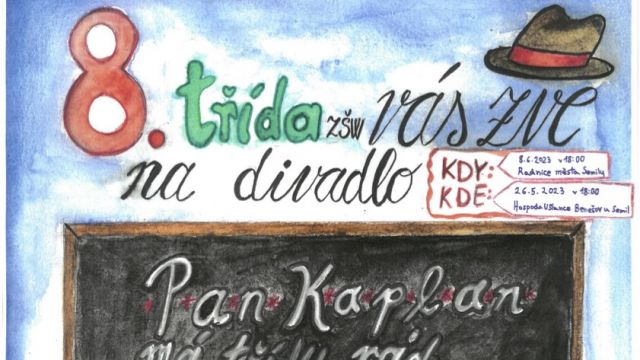 8. třída ZŠW vás zve
na divadlo
KDY:
KDE:
8.6.2023 v 18:00
Radnice města Semily
26.5.2023 v 18:00
Hospoda U Slance Benešov u Semil
Pan Kaplan
má třídu rád